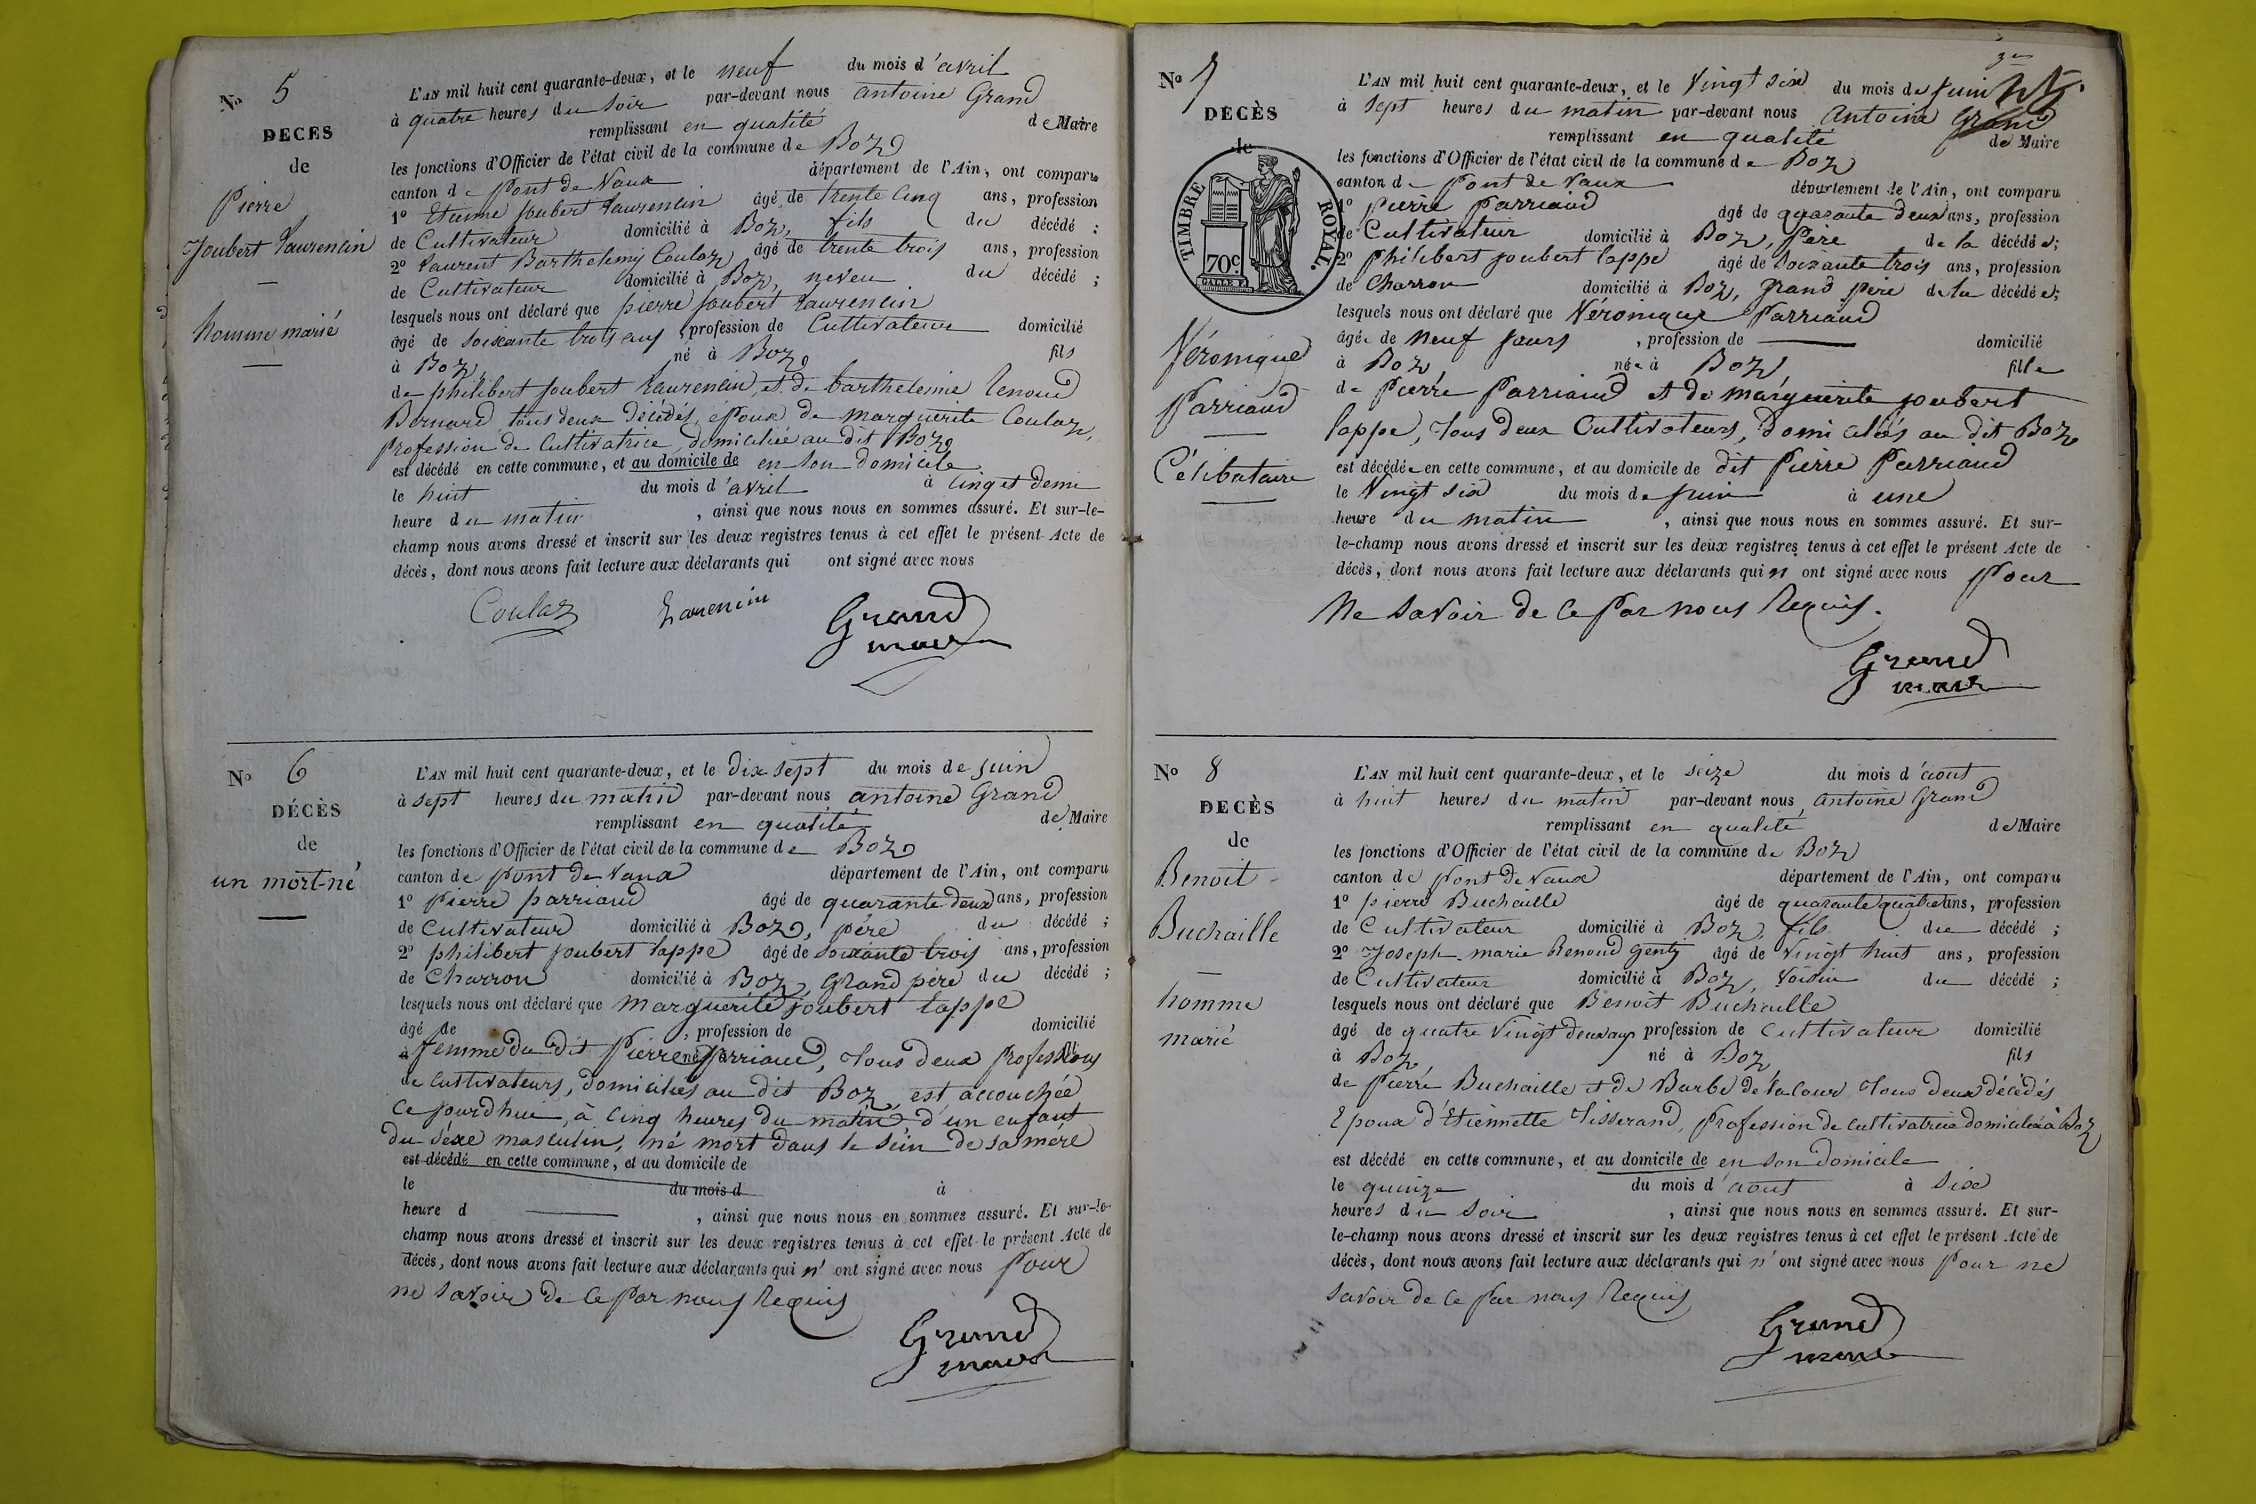 No 5
DECES
de
Pierre
Joubert Laurencin
homme marié
L'AN mil huit cent quarante-deux, et le neuf du mois d'avril
à quatre heures du soir par-devant nous antoine Grand
remplissant en qualité de Maire
les fonctions d'Officier de l'état civil de la commune de Boz
canton de Pont de Vaux département de l'Ain, ont comparu
1o Etienne Joubert Laurencin âgé de trente cinq ans, profession
de Cultivateur domicilié à Boz, fils du décédé ;
2o Laurent Barthelemy Coulaz âgé de trente trois ans, profession
de Cultivateur domicilié à Boz, neveu du décédé ;
lesquels nous ont déclaré que pierre Joubert Laurencin
âgé de soixante trois ans, profession de Cultivateur domicilié
à Boz, né à Boz fils
de philibert Joubert Laurencin, et de barthelemie Renoud
Bernard, tous deux décédés, époux de marguerite Coulaz,
profession de Cultivatrice, domiciliée au dit Boz
est décédé en cette commune, et au domicile de en son domicile
le huit du mois d'avril à cinq et demi
heure du matin, ainsi que nous nous en sommes assuré. Et sur-le-
champ nous avons dressé et inscrit sur les deux registres tenus à cet effet le présent Acte de
décès, dont nous avons fait lecture aux déclarants qui ont signé avec nous
Coulaz Laurencin Grand
maire
No 6
DÉCÈS
de
un mort-né
L'AN mil huit cent quarante-deux, et le dix sept du mois de juin
à sept heures du matin par-devant nous antoine Grand
remplissant en qualité de Maire
les fonctions d'Officier de l'état civil de la commune de Boz
canton de Pont de Vaux département de l'Ain, ont comparu
1o Pierre parriaud âgé de quarante deux ans, profession
de Cultivateur domicilié à Boz, père du décédé ;
2o philibert Joubert lappe âgé de soixante trois ans, profession
de Charron domicilié à Boz, Grand père du décédé ;
lesquels nous ont déclaré que marguerite Joubert lappe
âgé de , profession de domicilié
à femme du dit Pierre Parriaud, tous deux professions
de Cultivateurs, domiciliés au dit Boz, est accouchée
Ce jourd'hui, à Cinq heures du matin, d'un enfant
du séxe masculin, né mort dans le sein de sa mère
est décédé en cette commune, et au domicile de
le du mois d à
heure d , ainsi que nous nous en sommes assuré. Et sur-le-
champ nous avons dressé et inscrit sur les deux registres tenus à cet effet le présent Acte de
décès, dont nous avons fait lecture aux déclarants qui n' ont signé avec nous Pour
ne savoir de ce par nous Requis
Grand
maire
No 7
DECÈS
de
TIMBRE ROYAL.
70c
Véronique
Parriaud
Célibataire
L'AN mil huit cent quarante-deux, et le Vingt six du mois de Juin
à sept heures du matin par-devant nous Antoine Grand
remplissant en qualité de Maire
les fonctions d'Officier de l'état civil de la commune de Boz
canton de Pont de Vaux département de l'Ain, ont comparu
1o pierre parriaud âgé de quarante deux ans, profession
de Cultivateur domicilié à Boz, Père de la décédée;
2o philibert Joubert lappe âgé de soixante trois ans, profession
de Charron domicilié à Boz, Grand père de la décédée;
lesquels nous ont déclaré que Véronique Parriaud
âgée de neuf jours, profession de domicilié
à Boz née à Boz fille
de Pierre Parriaud et de marguerite Joubert
lappe, tous deux Cultivateurs, domiciliés au dit Boz
est décédée en cette commune, et au domicile de dit Pierre Parriaud
le Vingt six du mois de juin à une
heure du matin, ainsi que nous nous en sommes assuré. Et sur-
le-champ nous avons dressé et inscrit sur les deux registres tenus à cet effet le présent Acte de
décès, dont nous avons fait lecture aux déclarants qui n' ont signé avec nous Pour
Ne savoir de ce Par nous Requis.
Grand
maire
No 8
DECÈS
de
Benoit
Buchaille
homme
marié
L'AN mil huit cent quarante-deux, et le seize du mois d'aout
à huit heures du matin par-devant nous Antoine Grand
remplissant en qualité de Maire
les fonctions d'Officier de l'état civil de la commune de Boz
canton de Pont de Vaux département de l'Ain, ont comparu
1o pierre Buchaille âgé de quarante quatre ans, profession
de Cultivateur domicilié à Boz, fils du décédé ;
2o Joseph marie Renoud Genty âgé de Vingt huit ans, profession
de Cultivateur domicilié à Boz, Voisin du décédé ;
lesquels nous ont déclaré que Benoit Buchaille
âgé de quatre Vingt deux ans profession de Cultivateur domicilié
à Boz né à Boz, fils
de Pierre Buchaille et de Barbe de la Cour tous deux décédés
Epoux d'Etiennette Tisserand, Profession de cultivatrice domiciliée à Boz
est décédé en cette commune, et au domicile de en son domicile
le quinze du mois d'aout à six
heures du soir, ainsi que nous nous en sommes assuré. Et sur-
le-champ nous avons dressé et inscrit sur les deux registres tenus à cet effet le présent Acte de
décès, dont nous avons fait lecture aux déclarants qui n' ont signé avec nous Pour ne
savoir de ce Par nous Requis
Grand
maire